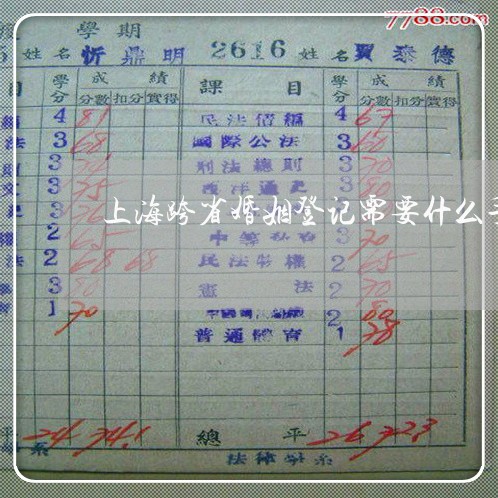 7788.com
學期
姓名 忻鼎明 2616 姓名 賈泰德
目 學分 成績 課目 學分 成績
分數 扣分 實得 分數 扣分 實得
4 81 民法債編 4 67
法 3 68 國際公法 3 60
3 刑法總則 3 70
3 75 西洋通史 3
上海跨省婚姻登记需要什么
2 65 3 70
法 2 68 68 民法物權 2 65
3 80 憲法 2 70
1 70 2 80
普通體育 1 78
平 24 74.1 總平 26 72.3
系 法律學系